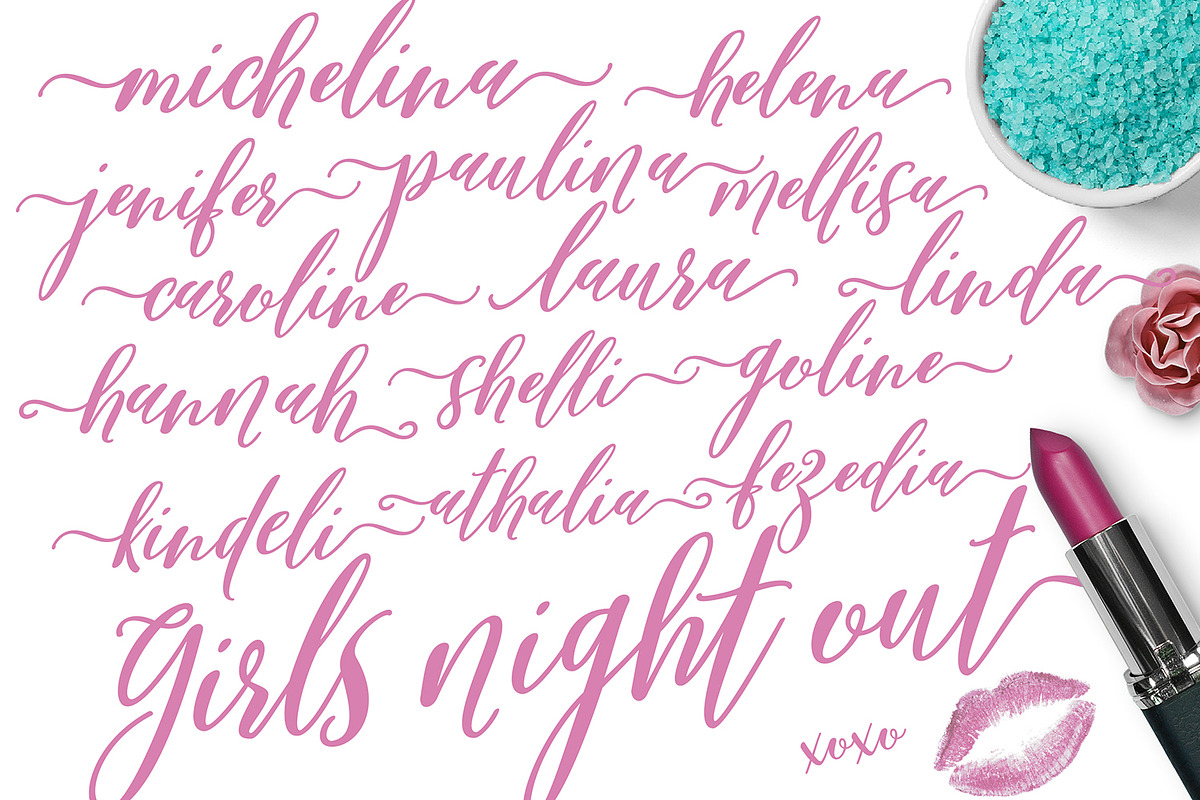 michelina helena
jenifer paulina mellisa
caroline laura linda
hannah shelli goline
kindeli athalia fezedia
Girls night out
xoxo